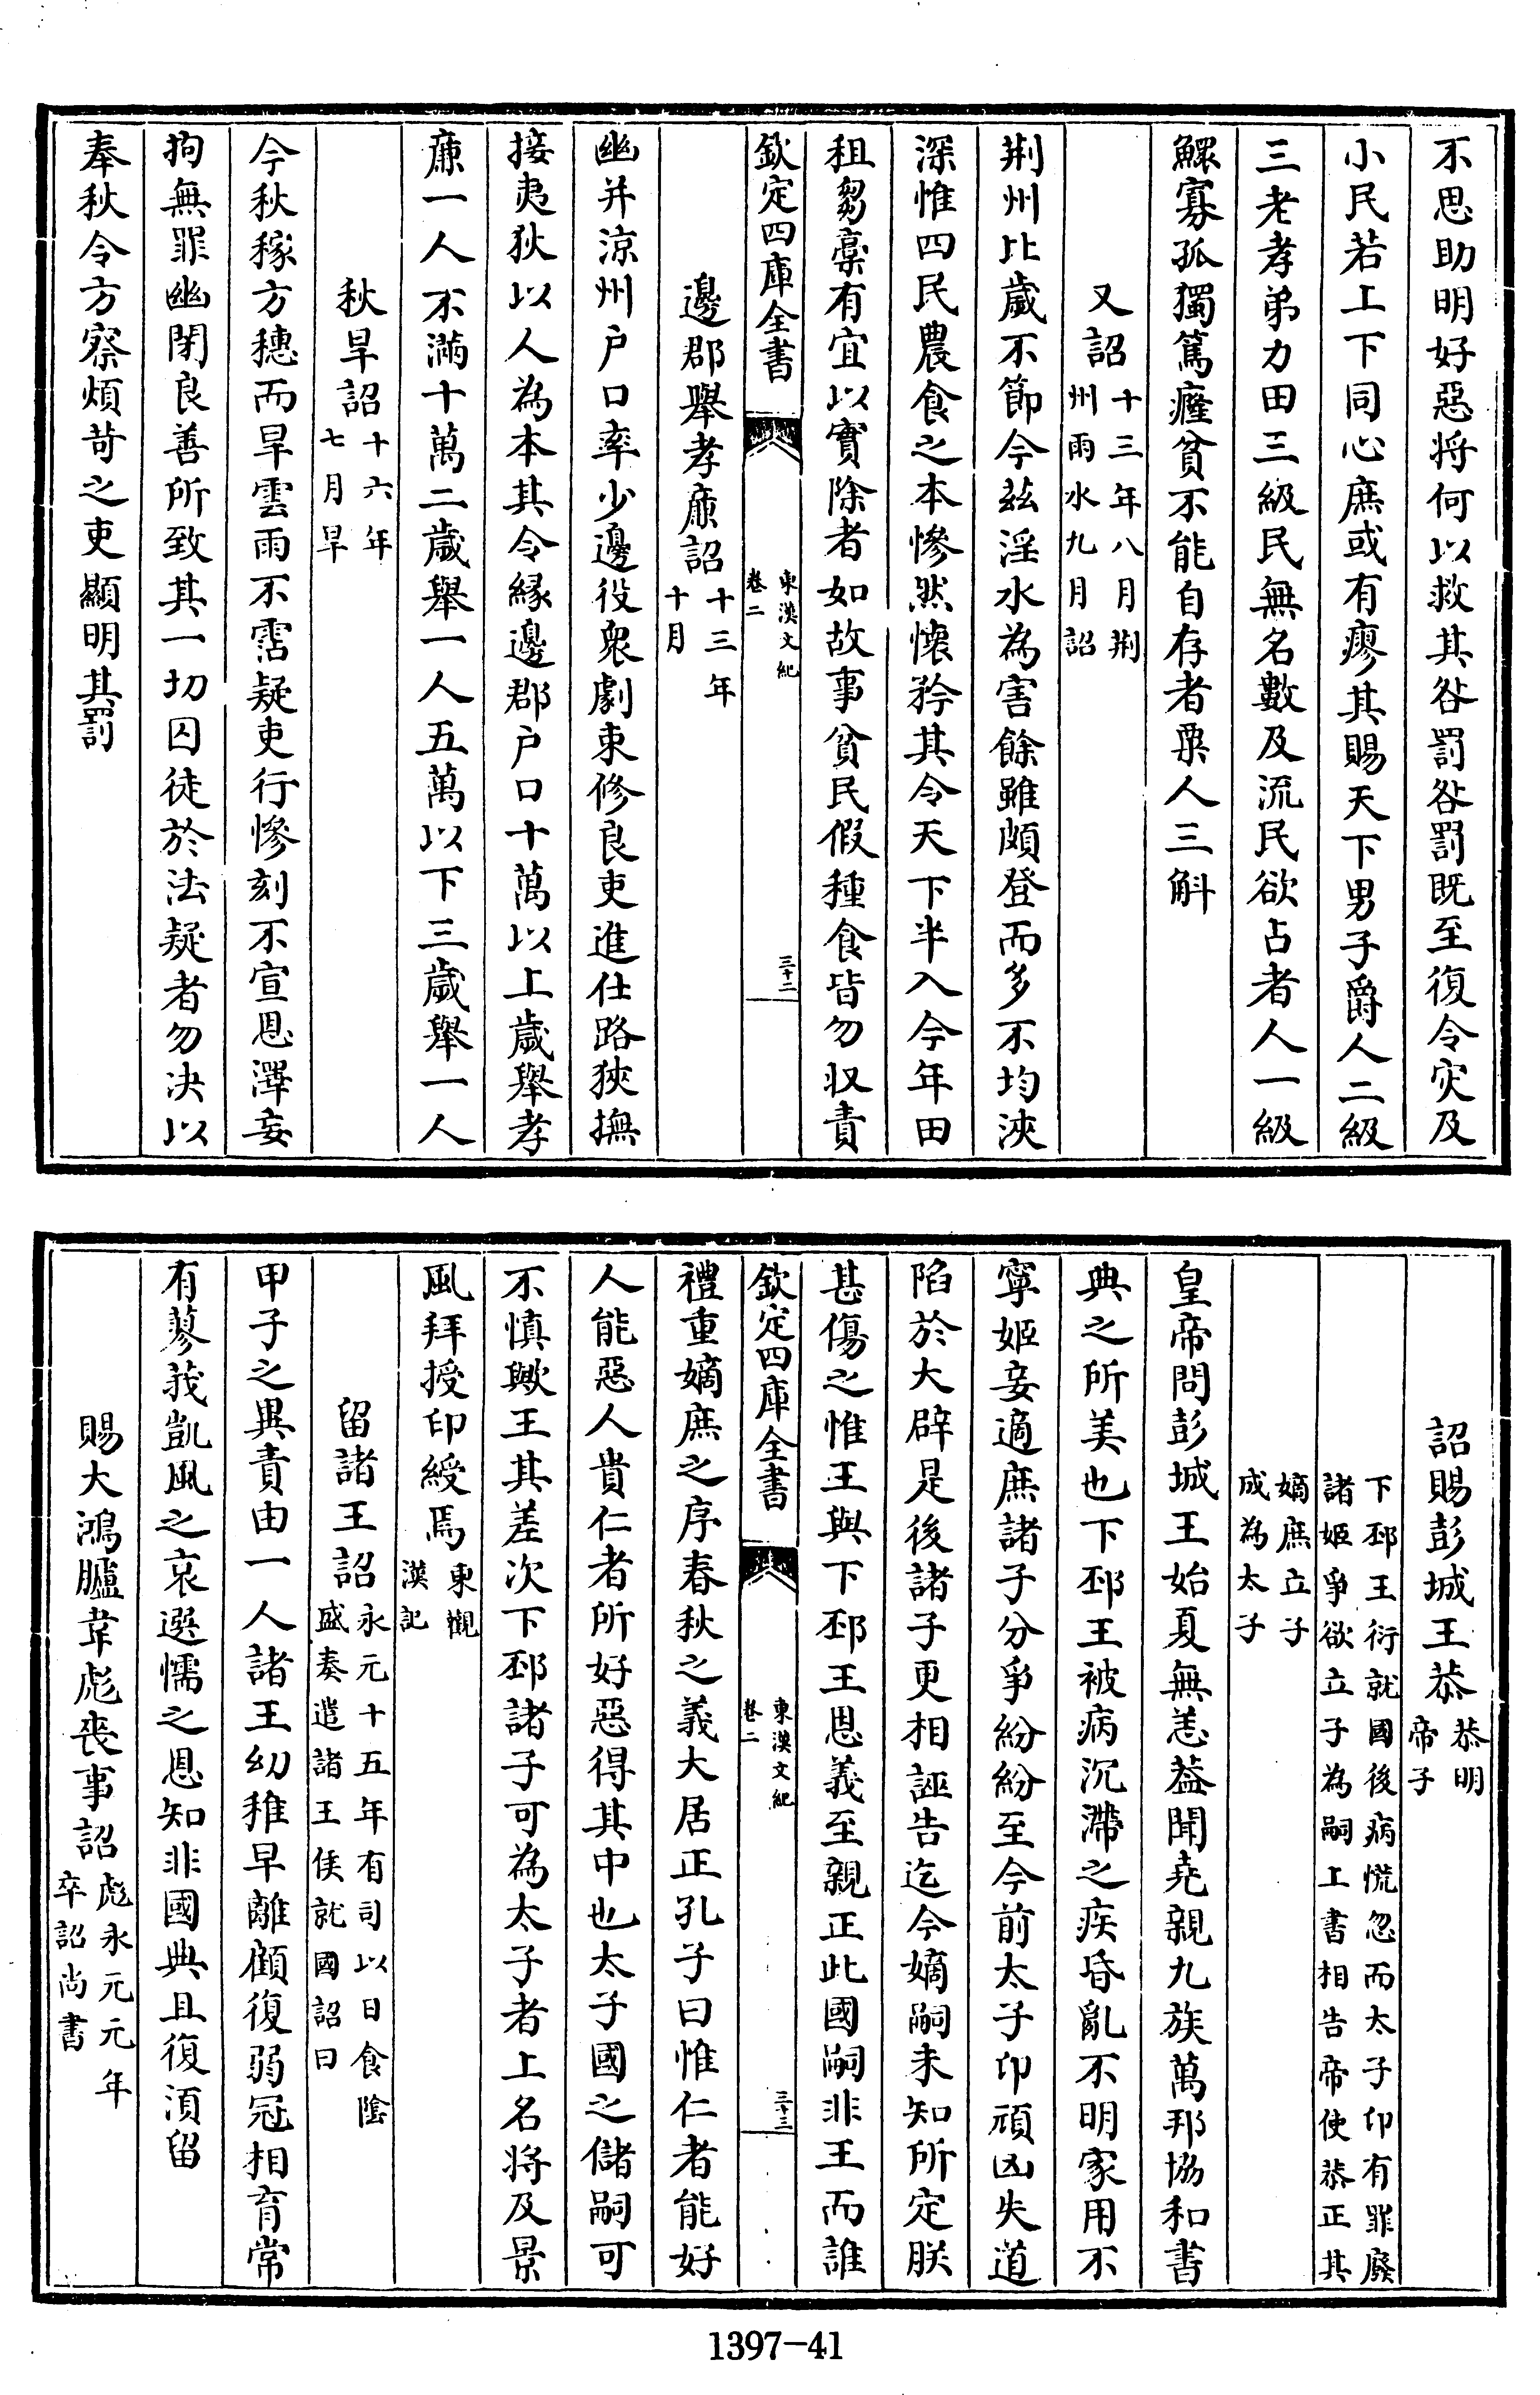 不思助明好惡将何以救其咎罰咎罰既至復令灾及
小民若上下同心庶或有瘳其賜天下男子爵人二級
三老孝弟力田三級民無名數及流民欲占者人一級
鰥寡孤獨篤癃貧不能自存者粟人三斛
又詔十三年八月荆
州雨水九月詔
荆州比歲不節今茲淫水為害餘雖頗登而多不均浹
深惟四民農食之本慘然懷矜其令天下半入今年田
租芻稾有宜以實除者如故事貧民假種食皆勿収責
欽定四庫全書
東漢文紀
卷二
三十二
邊郡舉孝廉詔十三年
十月
幽并涼州户口率少邊役衆劇束修良吏進仕路狹撫
接夷狄以人為本其令緣邊郡户口十萬以上歲舉孝
廉一人不滿十萬二歲舉一人五萬以下三歲舉一人
秋旱詔十六年
七月旱
今秋稼方穗而旱雲雨不霑疑吏行慘刻不宣恩澤妄
拘無罪幽閉良善所致其一切囚徒於法疑者勿决以
奉秋令方察煩苛之吏顯明其罰
詔賜彭城王恭恭明
帝子
下邳王衍就國後病慌忽而太子卬有罪廢
諸姬爭欲立子為嗣上書相告帝使恭正其
嫡庶立子
成為太子
皇帝問彭城王始夏無恙葢聞堯親九族萬邦協和書
典之所美也下邳王被病沉滯之疾昏亂不明家用不
寧姬妾適庶諸子分爭紛紛至今前太子卬頑凶失道
陷於大辟是後諸子更相誣告迄今嫡嗣未知所定朕
甚傷之惟王與下邳王恩義至親正此國嗣非王而誰
欽定四庫全書
東漢文紀
卷二
三十三
禮重嫡庶之序春秋之義大居正孔子曰惟仁者能好
人能惡人貴仁者所好惡得其中也太子國之儲嗣可
不慎歟王其差次下邳諸子可為太子者上名将及景
風拜授印綬焉東觀
漢記
留諸王詔永元十五年有司以日食陰
盛奏遣諸王侯就國詔曰
甲子之異責由一人諸王幼稚早離顧復弱冠相育常
有蓼莪凱風之哀選懦之恩知非國典且復湏留
賜大鴻臚韋彪喪事詔彪永元元年
卒詔尚書
1397-41